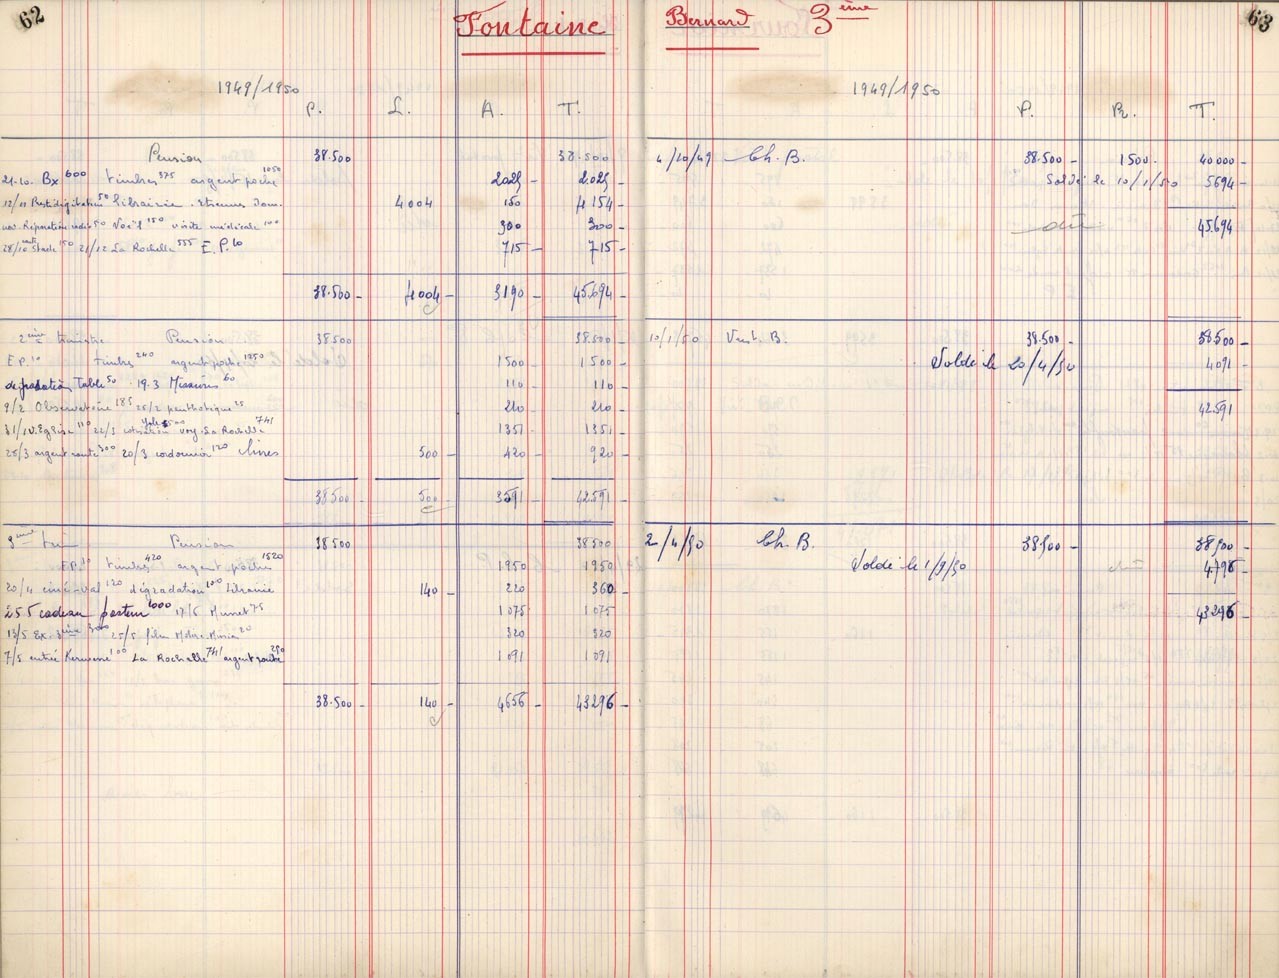 62
Fontaine
1949/1950
P. L. A. T.
Pension 38.500 38.500
21-10. Bx 600 timbres 375 argent poche 1050 2025 2.025
12/11 Prestidigitation 50 librairie. Etienne 4004 150 4154
Réparation 50 Noël 150 visite médicale 100 300 300
28/10 Stade 150 21/12 La Rochelle 555 E.P. 10 715 715
38.500 4004 3190 45.694
2ème trimestre Pension 38500 38.500
E P. 10 timbres 240 argent poche 1250 1500 1500
dégradation Table 50 19.3 60 110 110
9/2 Observatoire 185 25/2 25 210 210
31/1 Eglise 110 22/3 cotisation 500 voy. La Rochelle 741 1351 1351
25/3 argent route 300 20/3 cordonnier 120 livres 500 420 920
38500 500 3591 42.591
3ème trim Pension 38500 38500
E.P. 10 timbres 420 argent poche 1520 1950 1950
20/4 ciné-val 120 dégradation 100 librairie 140 220 360
25 5 cadeau pasteur 1000 17/5 75 1075 1.075
13/5 Ex. 3ème 300 25/5 film 20 320 320
7/5 entrée Kermesse 100 La Rochelle 741 argent poche 250 1091 1091
38.500 140 4656 43296
63
Bernard 3ème
1949/1950
P. R. T.
4/10/49 Ch. B. 38.500 1500 40000
Soldé le 10/1/50 5694
dû 45.694
10/1/50 B. 38.500 38.500
Soldé le 20/4/50 4091
42591
2/4/50 Ch. B. 38.500 38.500
Soldé le 1/9/50 dû 4796
43296